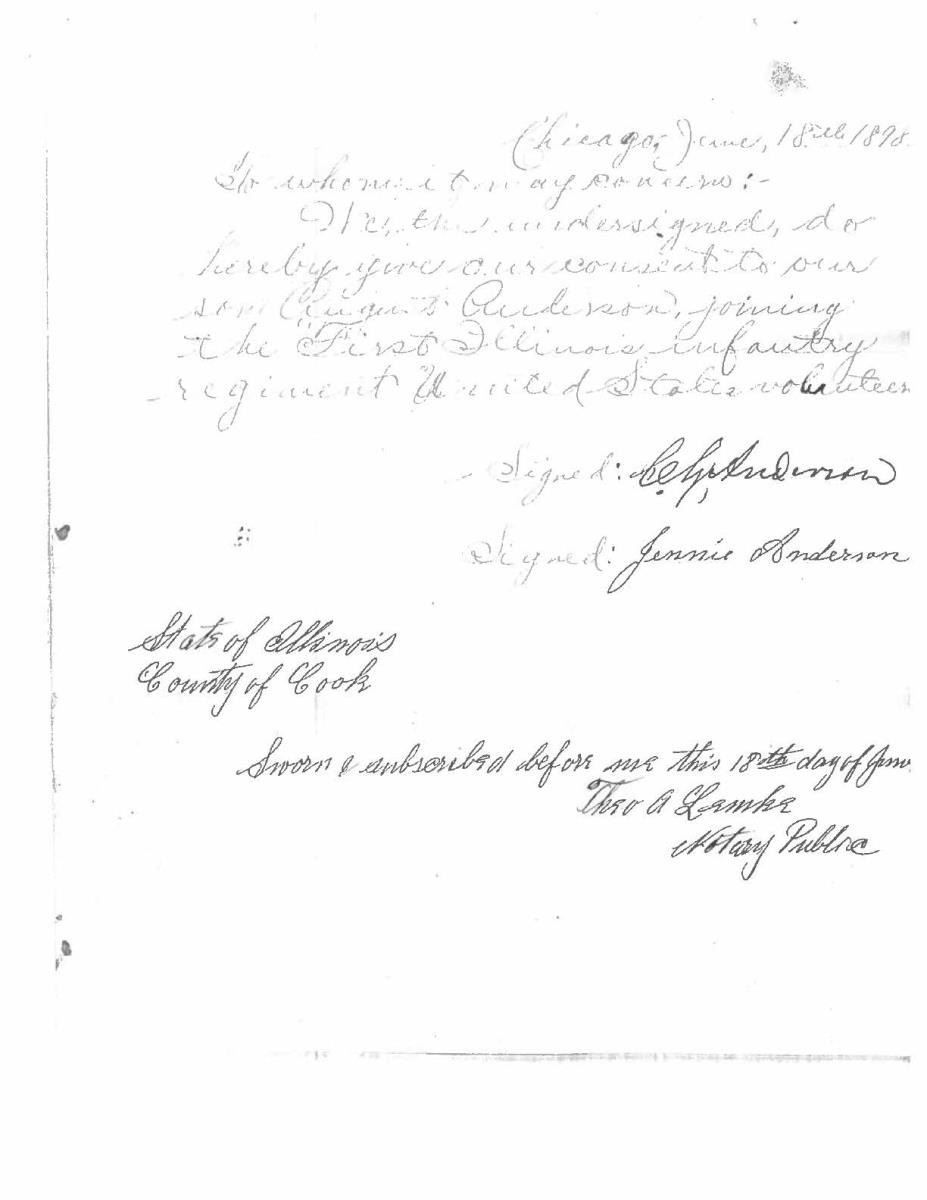 Chicago, June, 18th 1898.
To whom it may concern:-
We, the undersigned, do
hereby give our consent to our
son August Anderson, joining
the First Illinois infantry
regiment United States volunteer
Signed: C. G. Anderson
Signed: Jennie Anderson
State of Illinois
County of Cook
Sworn & subscribed before me this 18th day of June
Theo A Lemke
Notary Public